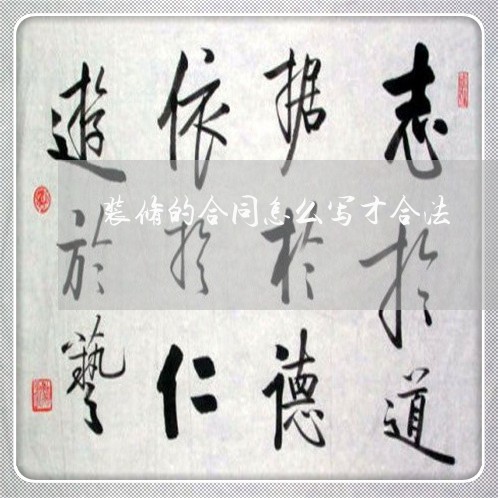 志於道
据於德
依於仁
遊於藝
装修的合同怎么写才合法